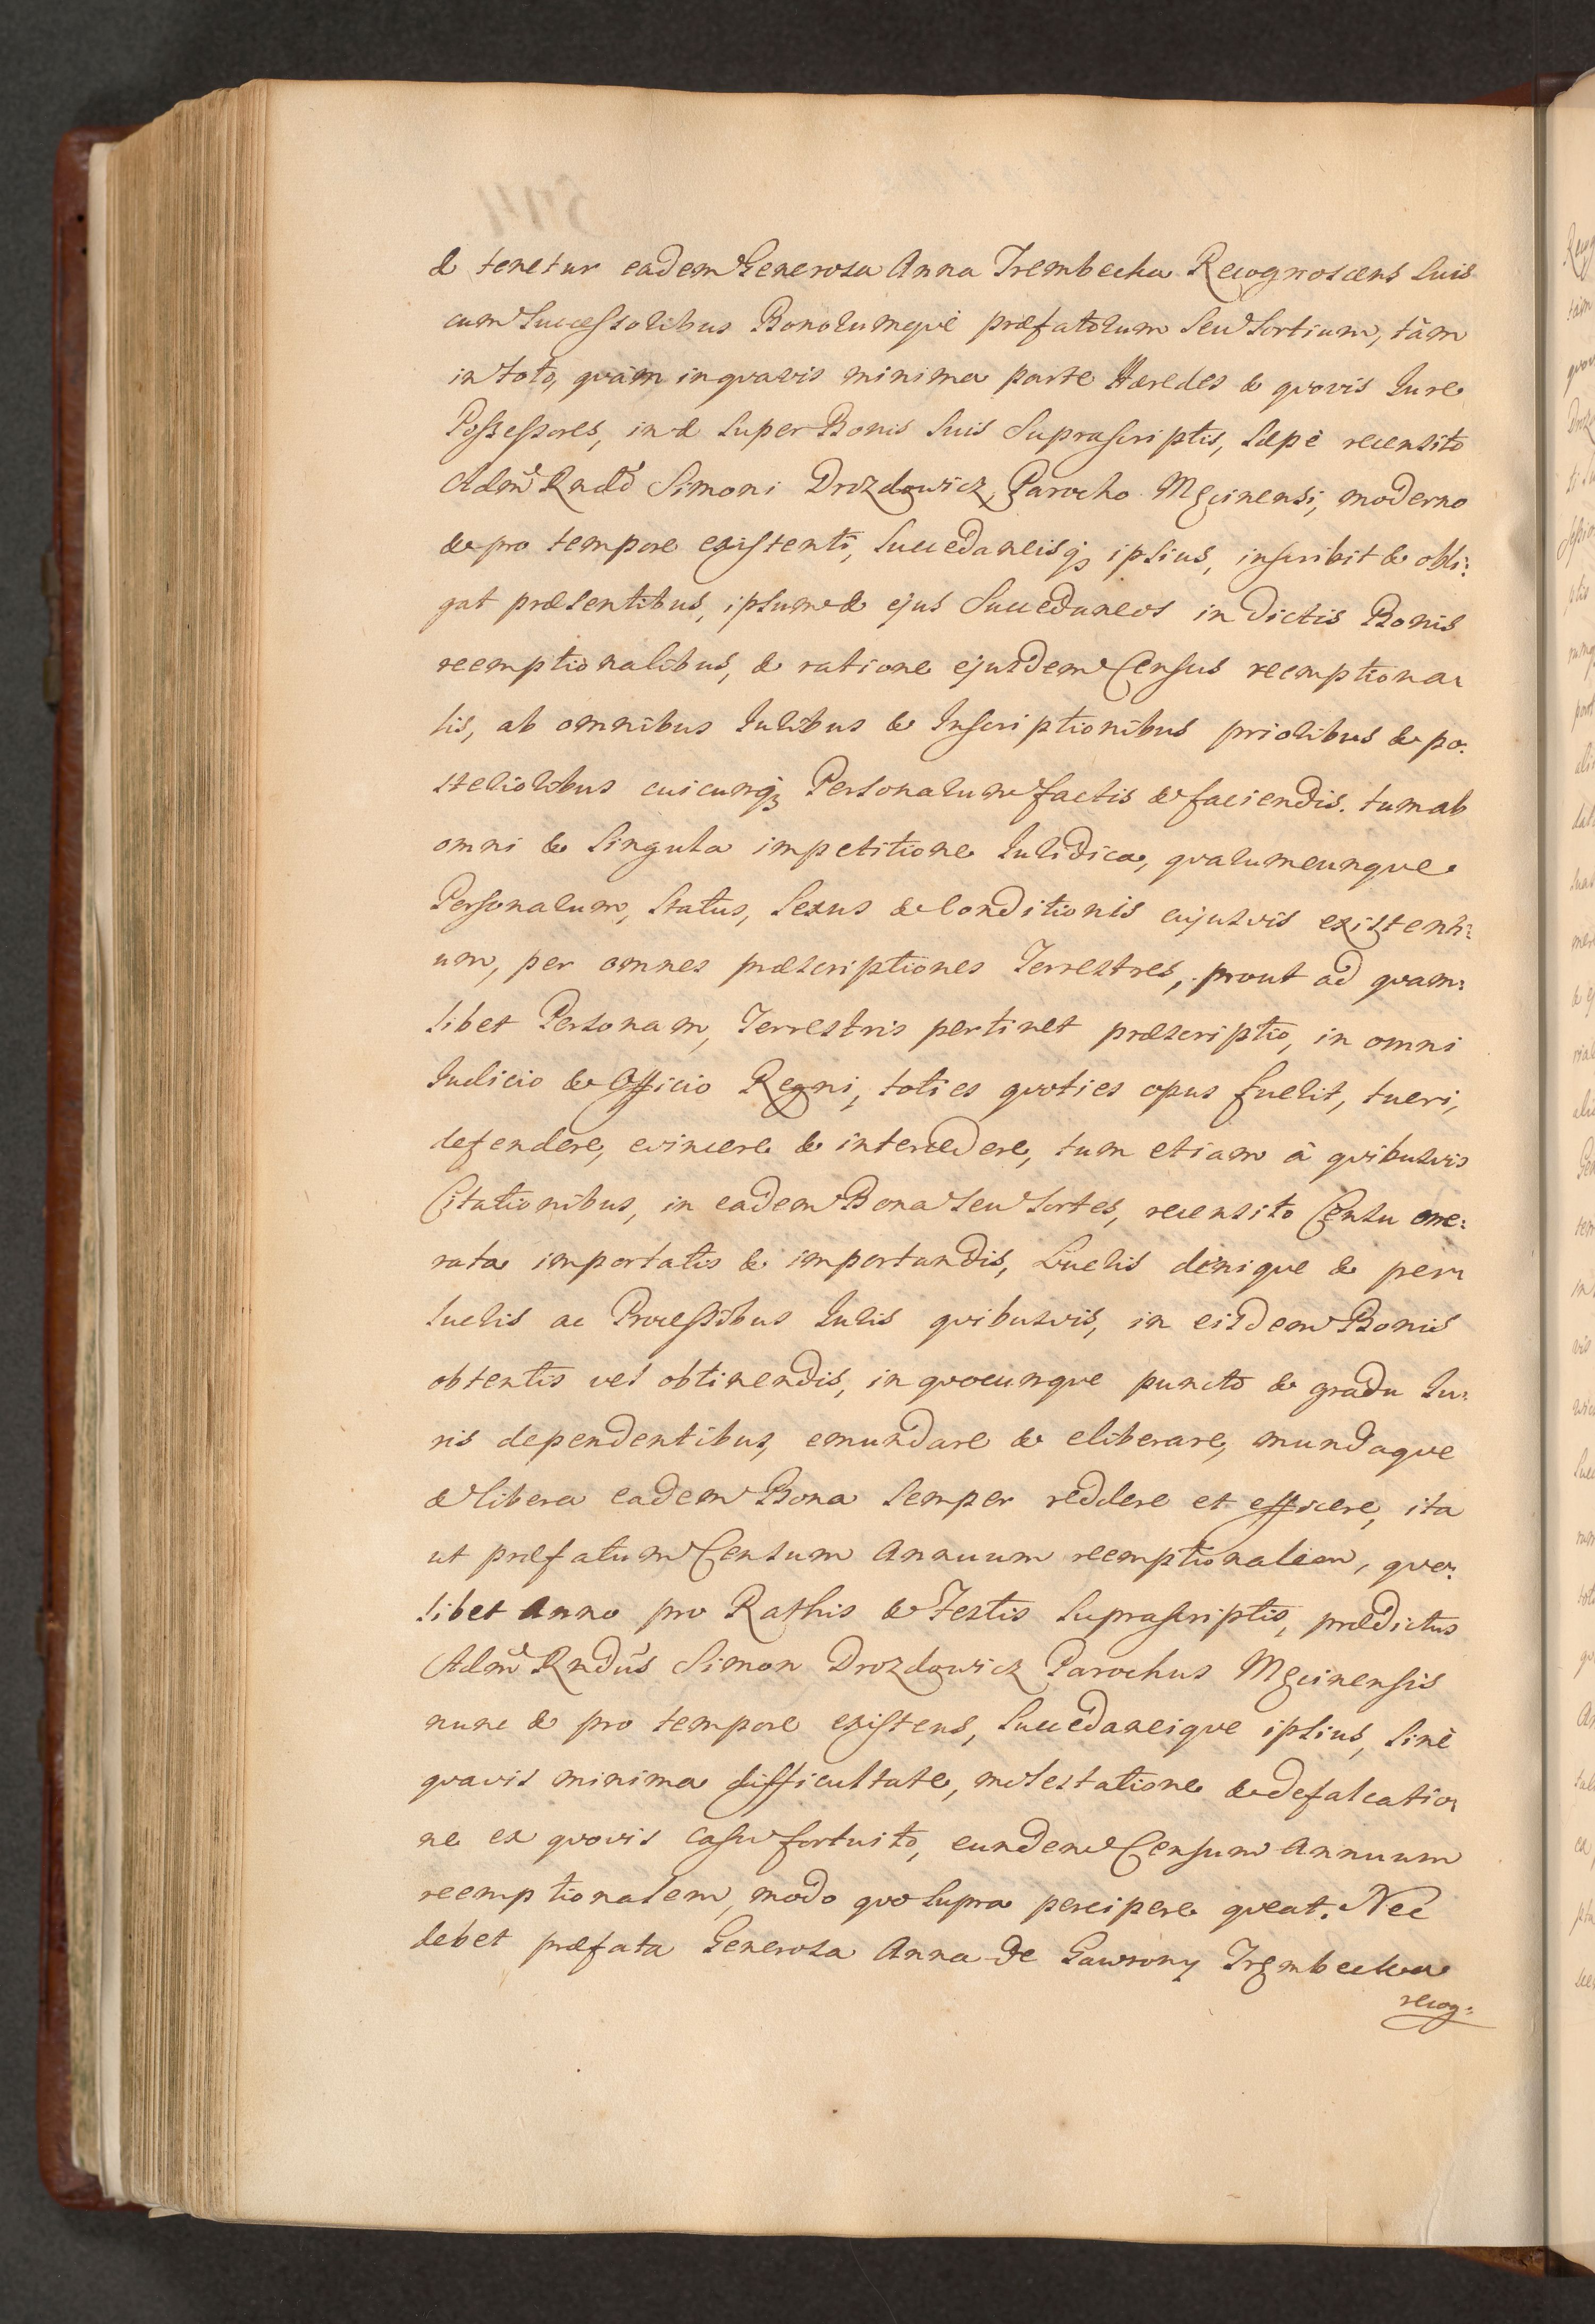 & tenetur eadem Generosa Anna Trembecka Recognoscens suis
cum Successoribus Bonorumquè præfatorum seu Sortium, tàm
in toto, quàm in quavis minima parte Hæredes & quovis Jure
Possessores, in & super Bonis suis suprascriptis, sæpè recensito
Admd Rndo Simoni Drozdowicz, Parocho Męcinensi, moderno
& pro tempore existenti, Succedaneisq; ipsius, inscribit & obli:
gat præsentibus, ipsum & ejus Succedaneos in dictis Bonis
reemptionalibus, & ratione ejusdem Census reemptiona:
lis, ab omnibus Juribus & Inscriptionibus prioribus & po:
sterioribus cuicunq; Personarum factis & faciendis. tum ab
omni & singula impetitione Juridica, quarumcunque
Personarum, status, sexus & conditionis cujusvis existenti:
um, per omnes præscriptiones Terrestres, prout ad quam:
libet Personam, Terrestris pertinet præscriptio, in omni
Judicio & Officio Regni, toties quoties opus fuerit, tueri,
defendere, evincere & intercedere, tum etiam à quibusvis
Citationibus, in eadem Bona seu Sortes, recensito Censu one:
rata importatis & importandis, Lucris denique & per:
lucris ac Processibus Juris quibusvis, in eisdem Bonis
obtentis vel obtinendis, in quocunque puncto & gradu Ju:
ris dependentibus, emundare & eliberare, mundaque
& libera eadem Bona semper reddere et efficere, ita
ut præfatum Censum Annuum reemptionalem, quo:
libet Anno pro Rathis & Festis suprascriptis, prædictus
Admd Rndùs Simon Drozdowicz Parochus Męcinensis
nunc & pro tempore existens, Succedaneique ipsius, sinè
quavis minima difficultate, molestatione & defalcatio:
ne ex quovis casu fortuito, eundem Censum Annuum
reemptionalem, modo quo supra percipere queat. Nec
debet præfata Generosa Anna de Gawrony Trembecka
recog: